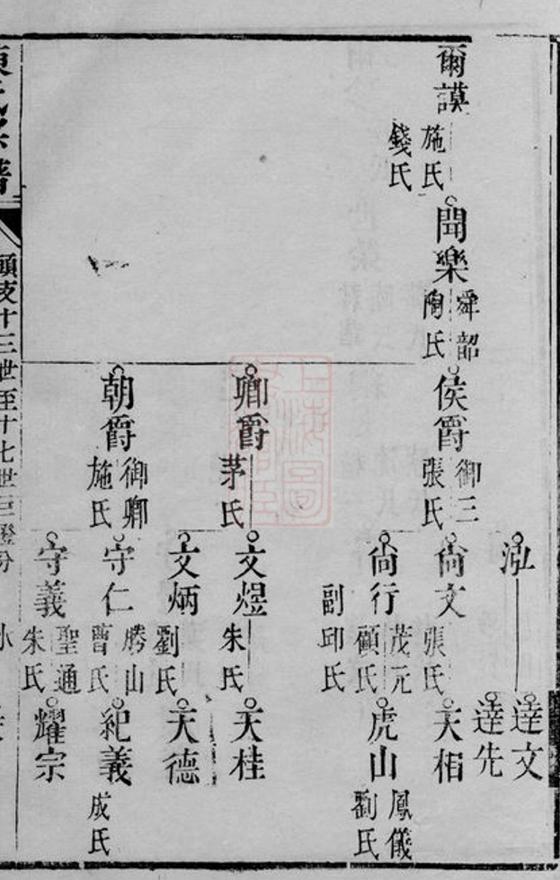 爾謨
施氏
錢氏
聞樂
舜韶
陶氏
侯爵
御三
張氏
卿爵
茅氏
朝爵
御卿
施氏
泓
尙文
張氏
尙行
茂元
顧氏
副邱氏
文煜
朱氏
文炳
劉氏
守仁
勝山
曹氏
守義
聖通
朱氏
達文
達先
天相
虎山
鳳儀
劉氏
天桂
天德
紀義
成氏
耀宗
頭支十三世至十七世